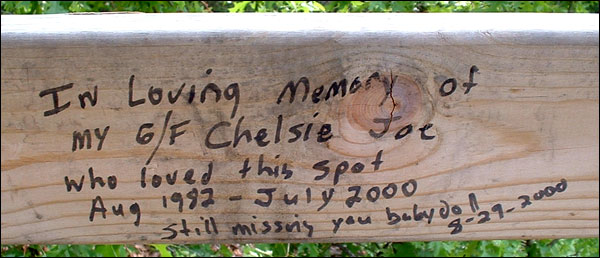 In Loving Memory of
my G/F Chelsie Joe
who loved this spot
Aug 1982 - July 2000
Still missing you babydoll
8-29-2000